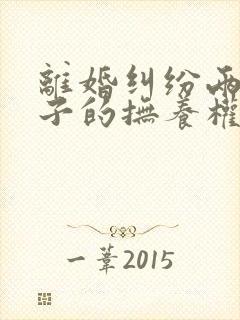 離婚糾紛兩
子的撫養權
一葦2015